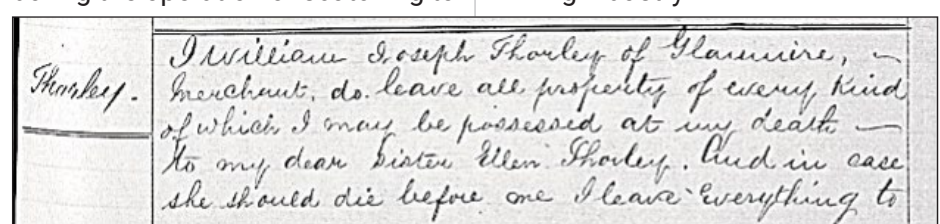 Thorley.
I William Joseph Thorley of Glanmire, –
Merchant, do leave all property of every Kind
of which I may be possessed at my death –
to my dear Sister Ellen Thorley. And in case
she should die before me I leave Everything to